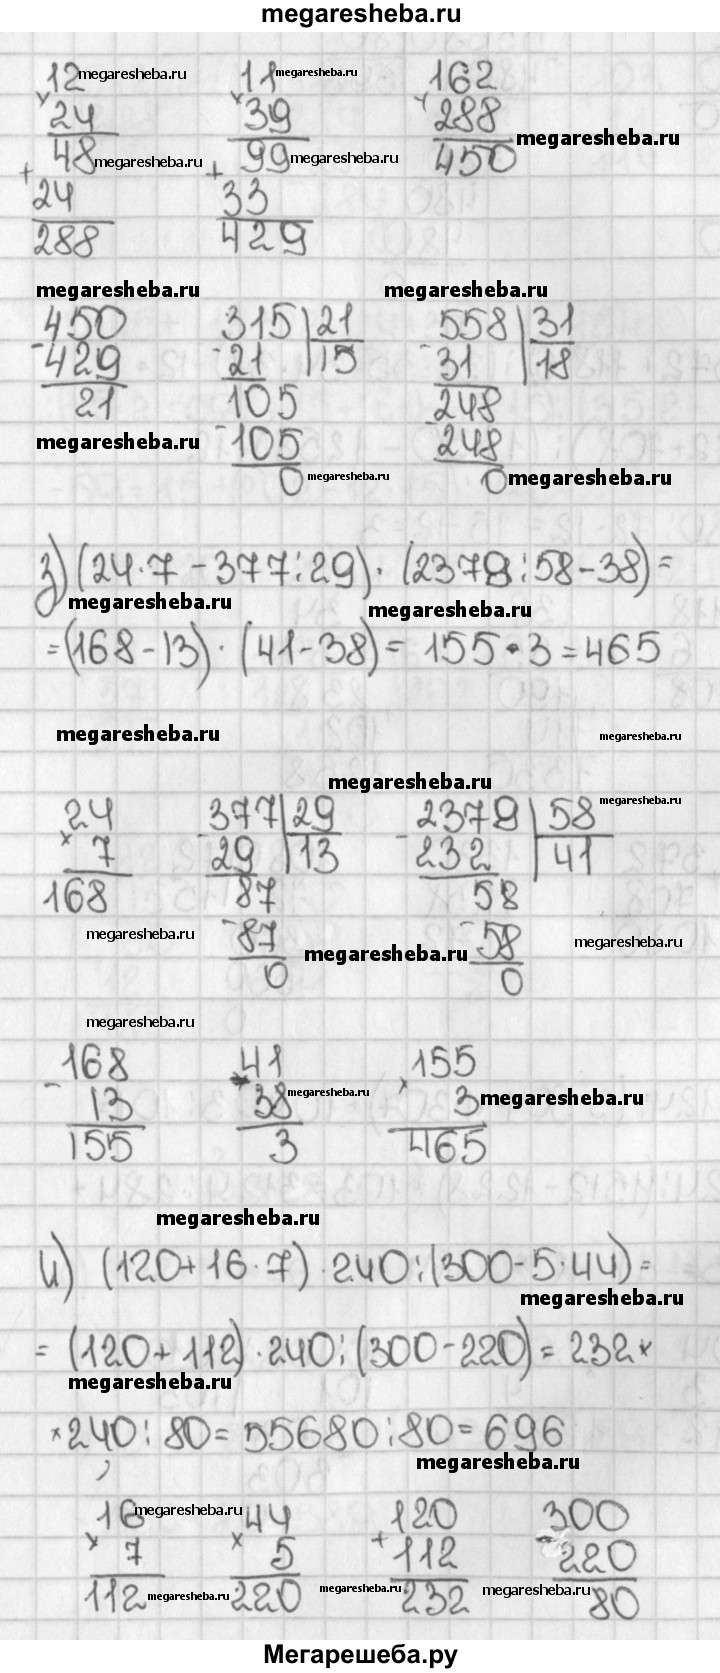 megaresheba.ru
12 megaresheba.ru 11 megaresheba.ru 162
× 24 × 39 + 288 megaresheba.ru
48 megaresheba.ru 99 megaresheba.ru 450
+ 24 + 33
288 429
megaresheba.ru megaresheba.ru
450 315 | 21 558 | 31
- 429 - 21 | 15 - 31 | 18
21 105 248
megaresheba.ru - 105 - 248
0 megaresheba.ru 0 megaresheba.ru
з) (24·7-377:29)·(2379:58-38)=
megaresheba.ru megaresheba.ru
=(168-13)·(41-38)= 155·3=465
megaresheba.ru megaresheba.ru
megaresheba.ru
24 377 | 29 2379 | 58 megaresheba.ru
× 7 - 29 | 13 - 232 | 41
168 87 58
megaresheba.ru - 87 megaresheba.ru - 58 megaresheba.ru
0 0
megaresheba.ru
168 41 155
- 13 - 38 megaresheba.ru × 3 megaresheba.ru
155 3 465
megaresheba.ru
и) (120+16·7)·240:(300-5·44)=
megaresheba.ru
=(120+112)·240:(300-220)=232×
megaresheba.ru
×240:80=55680:80=696
megaresheba.ru
16 megaresheba.ru 44 120 300
× 7 × 5 + 112 - 220
112 megaresheba.ru 220 megaresheba.ru 232 megaresheba.ru 80
Мегарешеба.ру